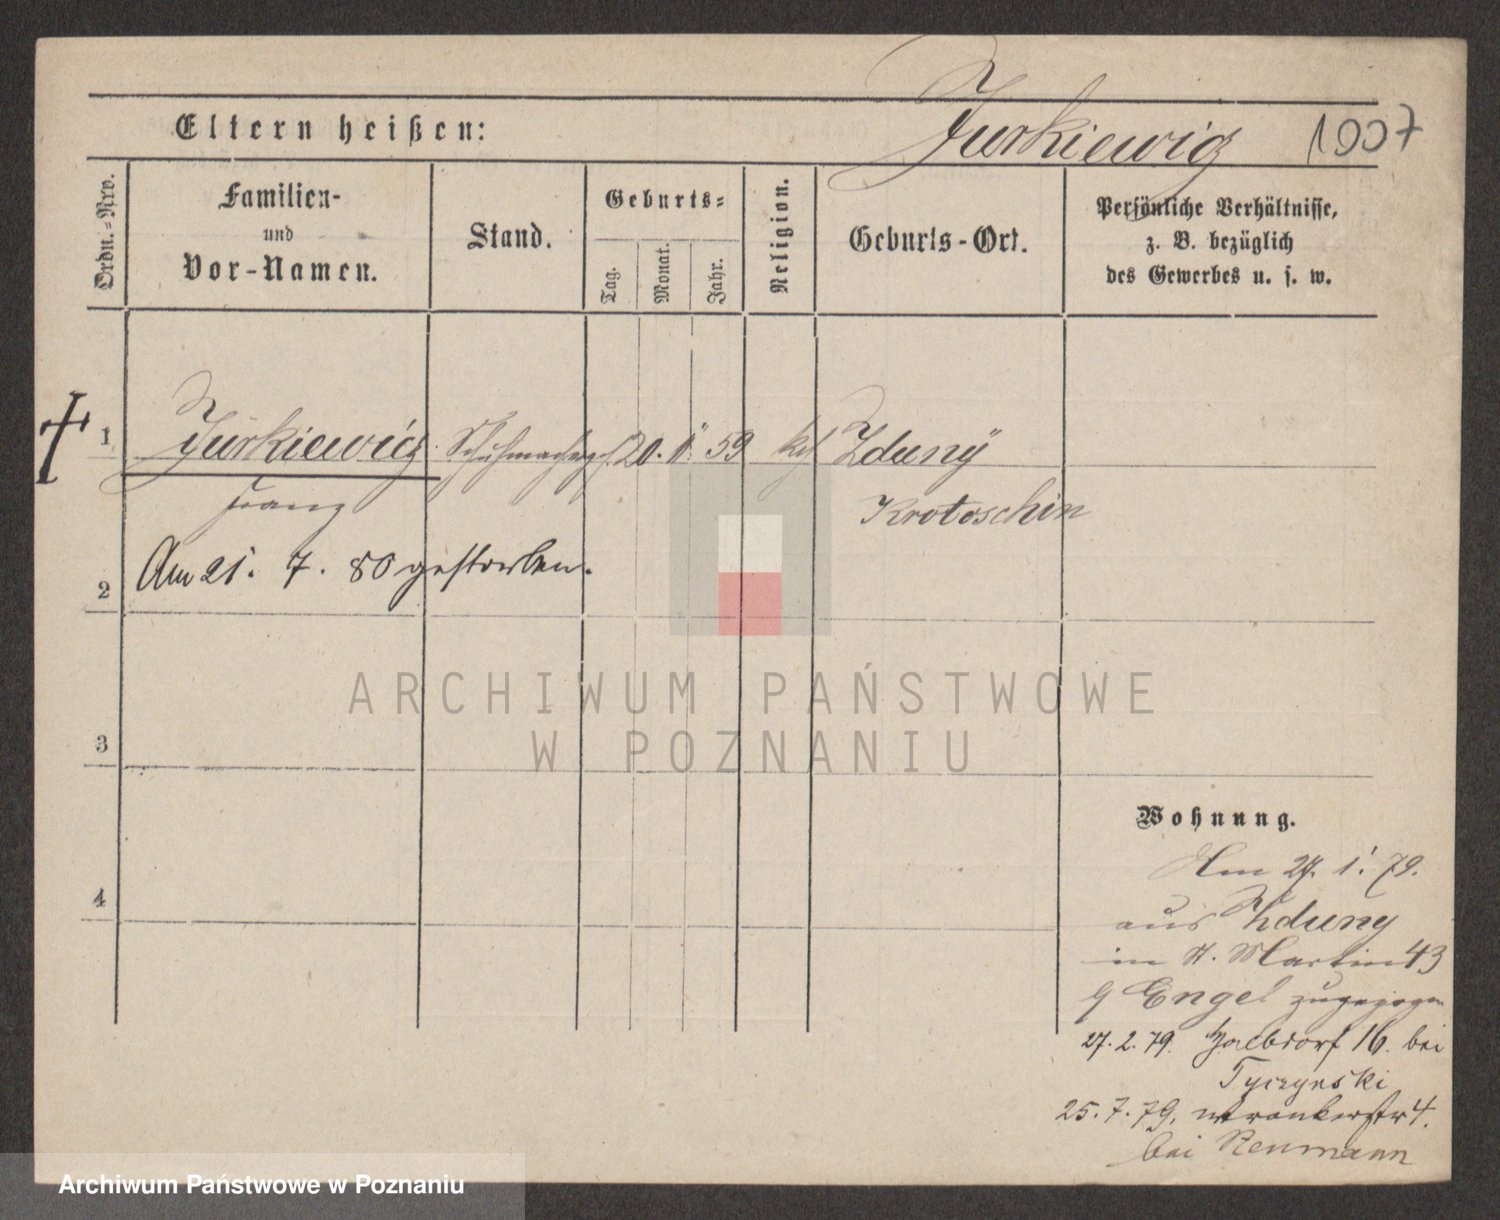 Jurkiewicz 1007
Eltern heißen:
Ordn.=Nro.
Familien-
und
Vor-Namen.
Stand.
Geburts=
Tag.
Monat.
Jahr.
Religion.
Geburts-Ort.
Persönliche Verhältnisse,
z. B. bezüglich
des Gewerbes u. s. w.
1 Jurkiewicz Schuhmacherges. 20. 11. 59 kath Zduny
Franz Krotoschin
2 Am 21. 7. 80 gestorben.
3
4
Wohnung.
Am 27. 1. 79.
aus Zduny
in St. Martin 43
Engel zugezogen
27. 2. 79. Halbdorf 16. bei
Tyczynski
25. 7. 79.
bei Neumann
ARCHIWUM PAŃSTWOWE
W POZNANIU
Archiwum Państwowe w Poznaniu